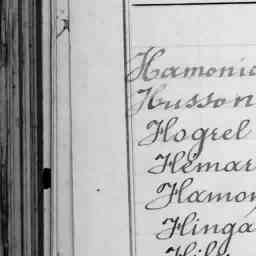 Hamonic
Husson
Hogrel
Hémar
Hamon
Hinga